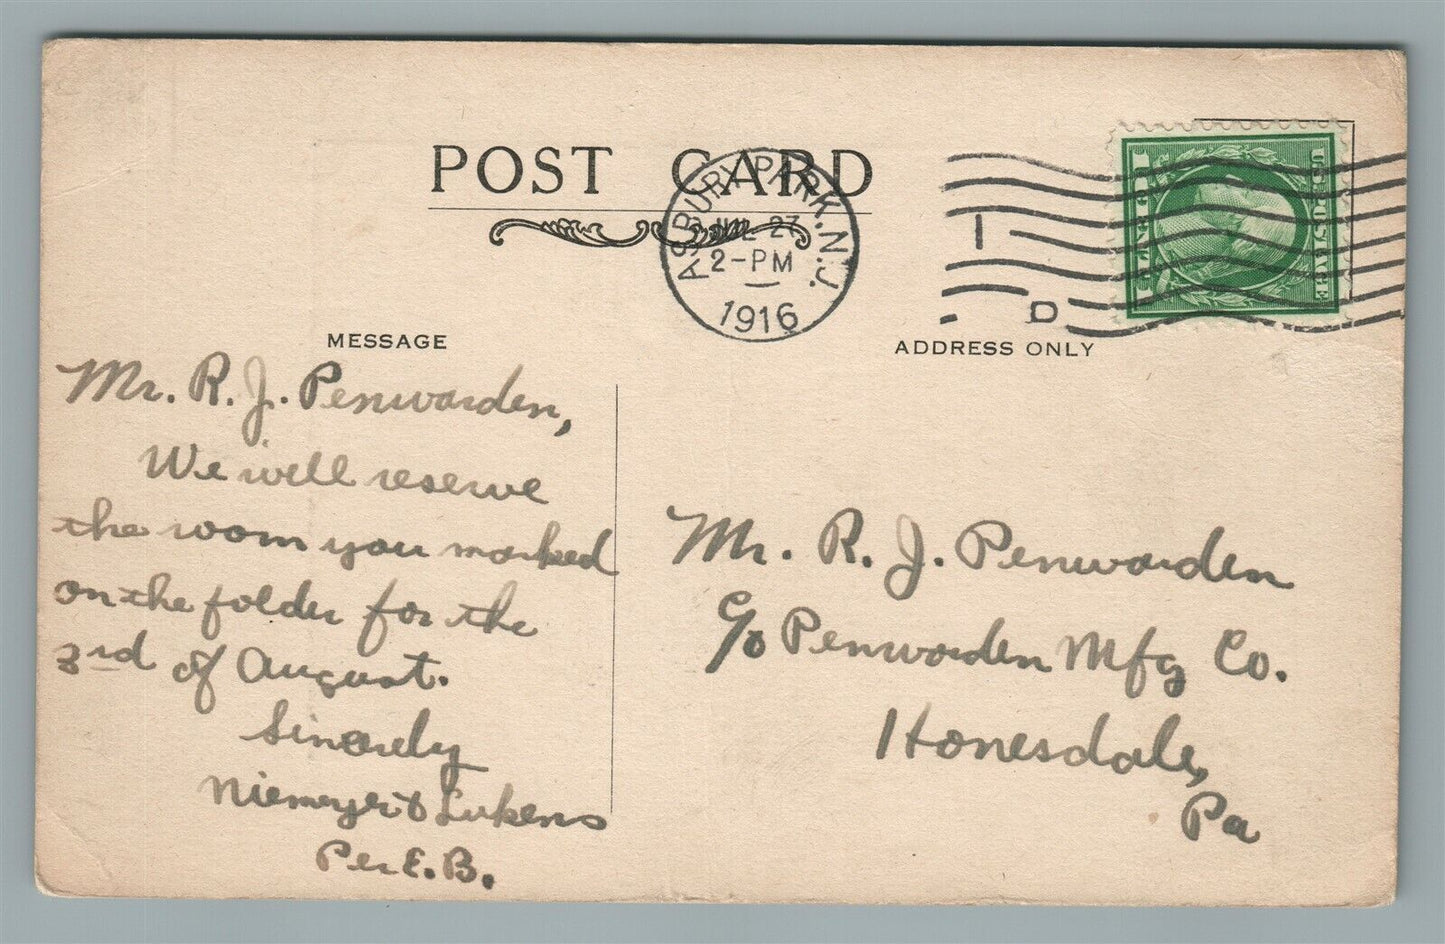 POST CARD
ASBURY PARK, N.J.
JUL 27
2-PM
1916
U.S. POSTAGE
MESSAGE
ADDRESS ONLY
Mr. R. J. Penwarden,
We will reserve
the room you marked
on the folder for the
3rd of August.
Sincerely
Niemeyer & Lukens
Per E. B.
Mr. R. J. Penwarden
c/o Penwarden Mfg Co.
Honesdale,
Pa